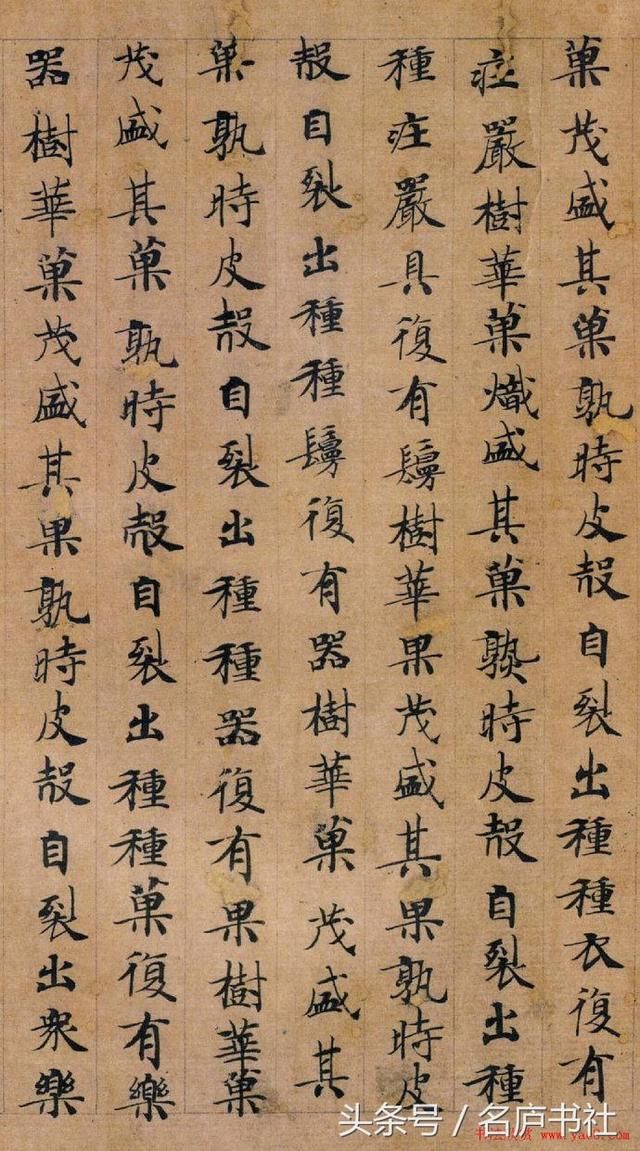 菓茂盛其菓孰時皮殼自裂出種種衣復有
庄嚴樹華菓熾盛其菓孰時皮殼自裂出種
種庄嚴具復有鬘樹華果茂盛其果孰時皮
殼自裂出種種鬘復有器樹華菓茂盛其
菓孰時皮殼自裂出種種器復有果樹華菓
茂盛其菓孰時皮殼自裂出種種菓復有樂
器樹華菓茂盛其果孰時皮殼自裂出衆樂
头条号/名庐书社
www.yac8.com